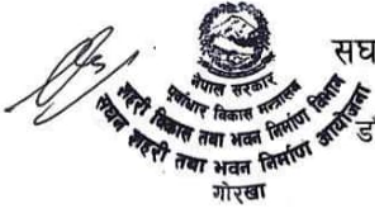 नेपाल सरकार
पूर्वाधार विकास मन्त्रालय
शहरी विकास तथा भवन निर्माण विभाग
सघन शहरी तथा भवन निर्माण आयोजना
गोरखा
सघ